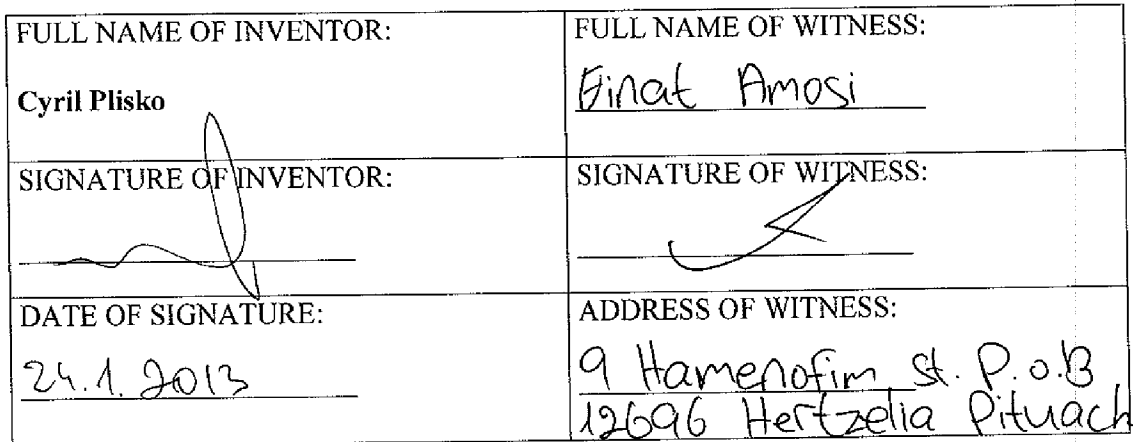 FULL NAME OF INVENTOR:
Cyril Plisko
FULL NAME OF WITNESS:
Einat Amosi
SIGNATURE OF INVENTOR:
SIGNATURE OF WITNESS:
DATE OF SIGNATURE:
24.1.2013
ADDRESS OF WITNESS:
9 Hamenofim st. P.o.B
12696 Hertzelia Pituach